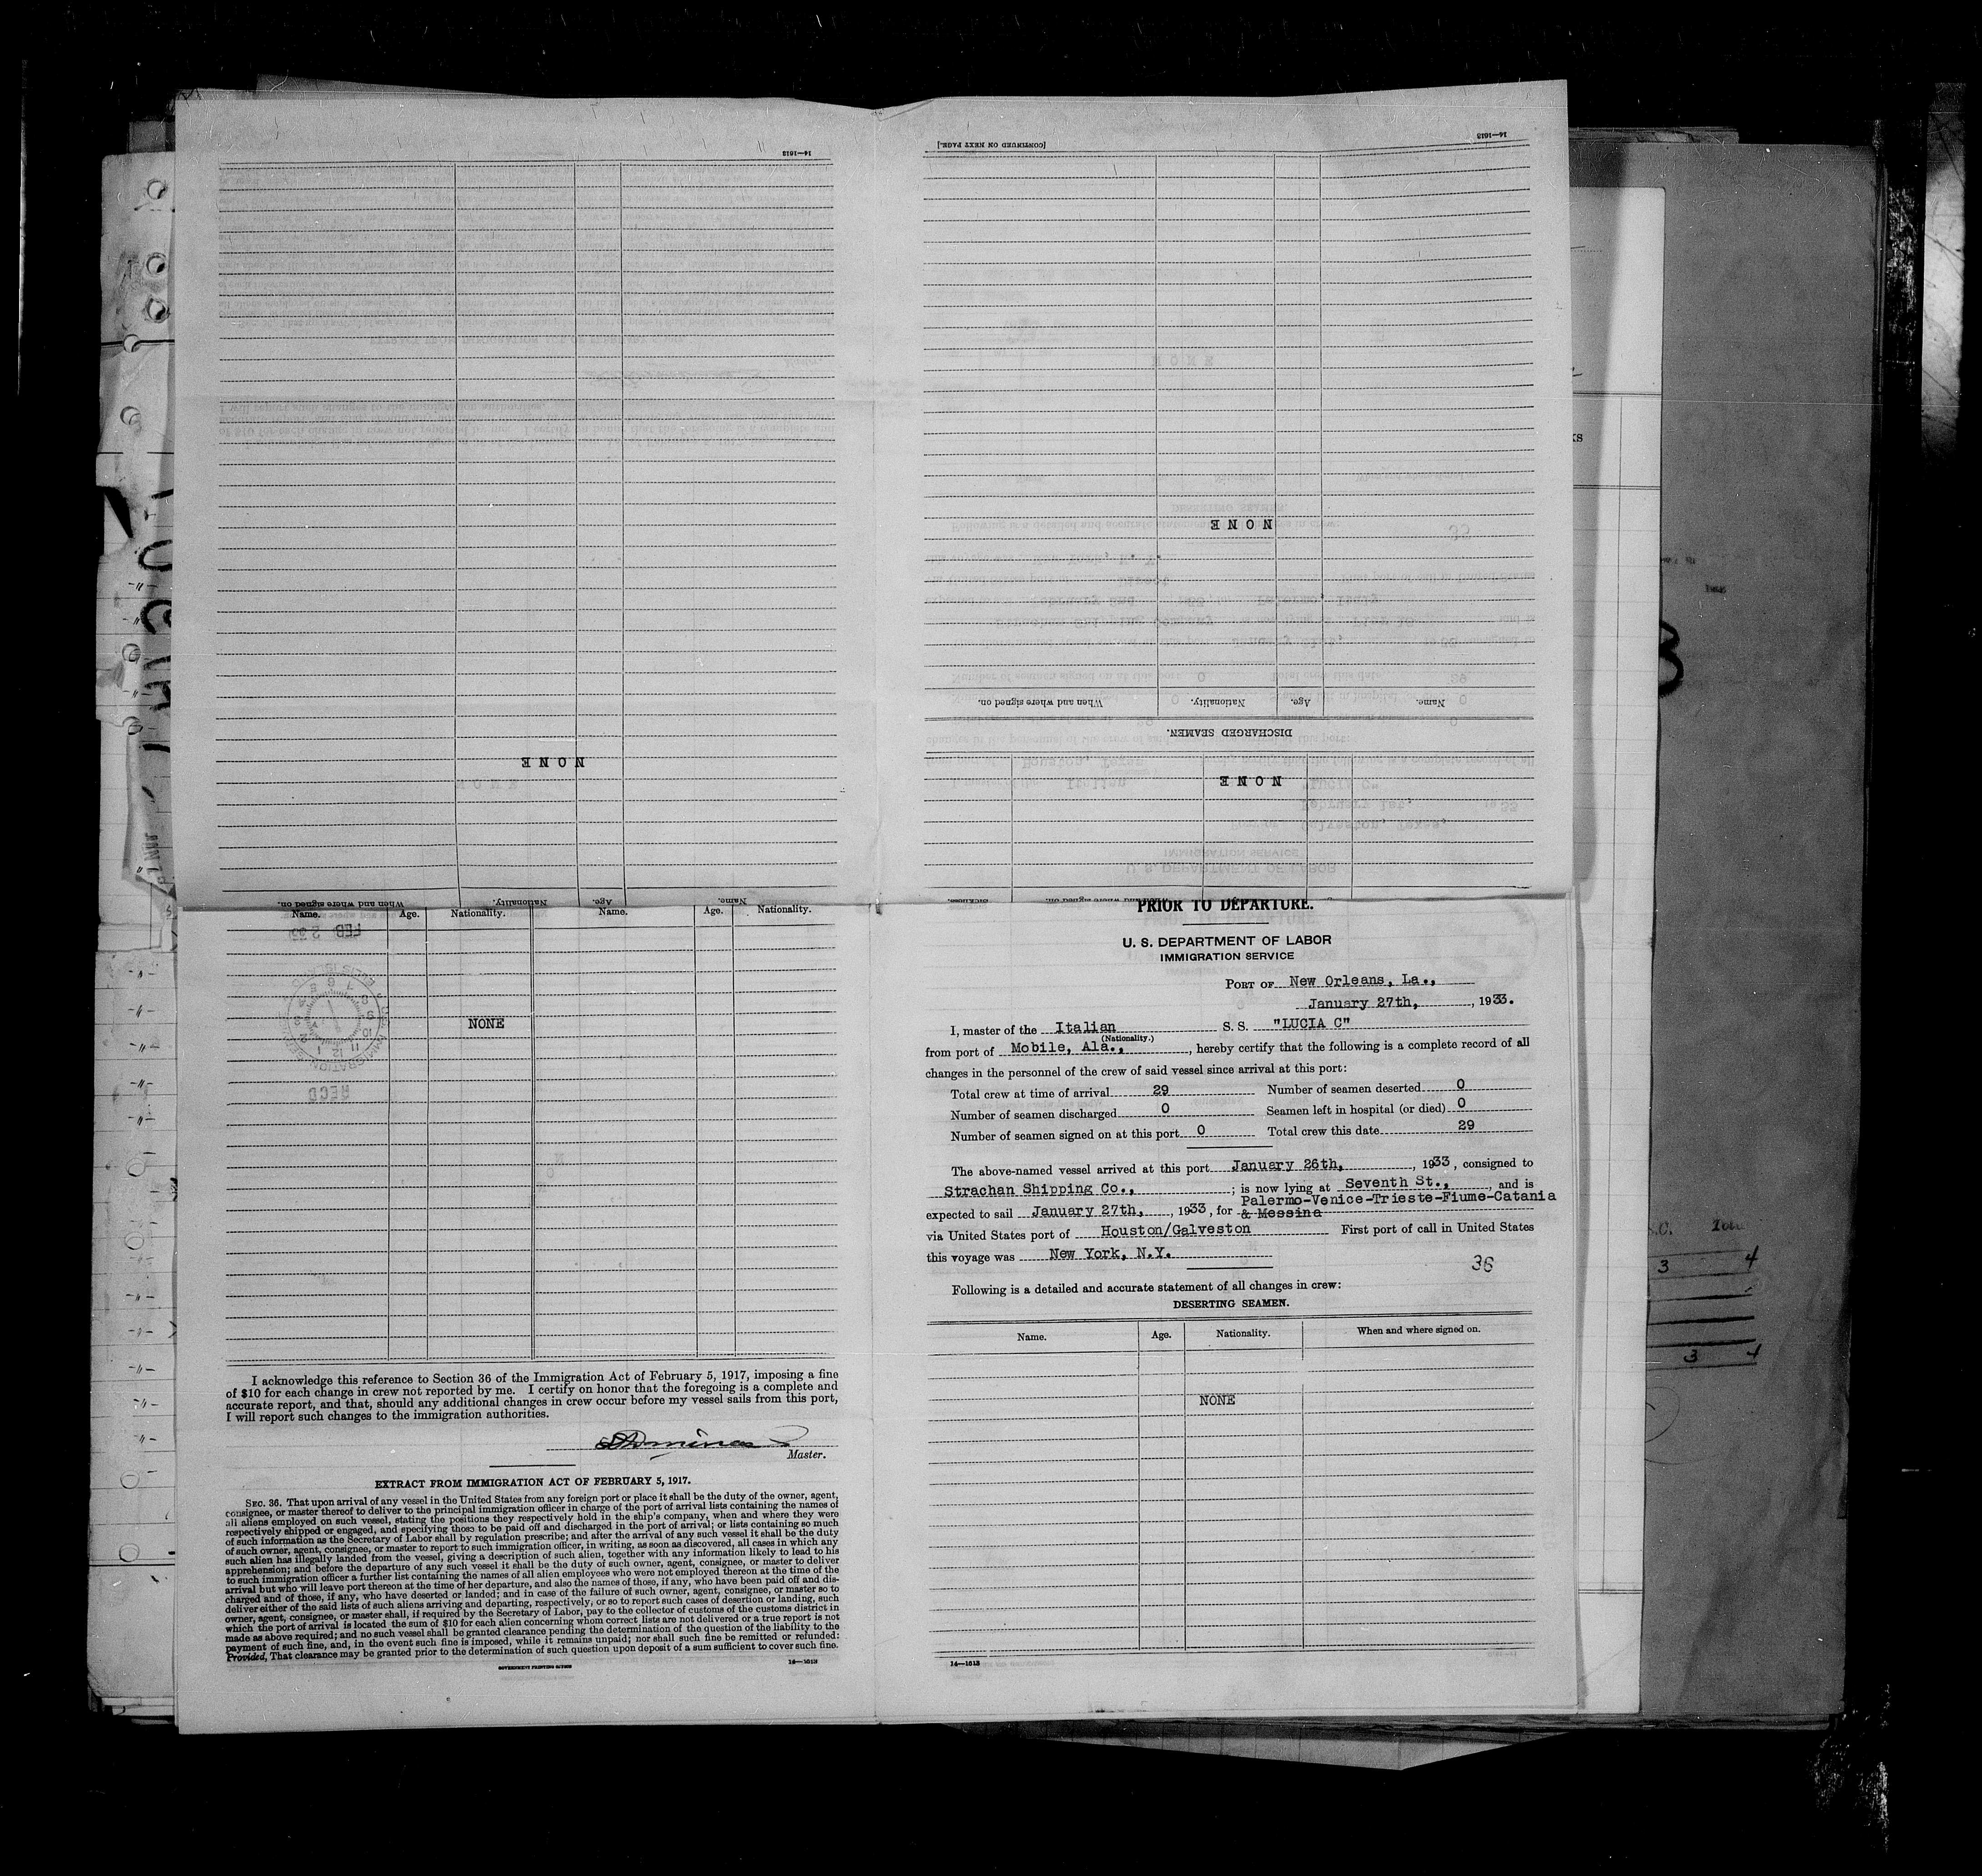 14—1613
[CONTINUED ON NEXT PAGE.]
14—1613
NONE
When and where signed on.
Nationality.
Age.
Name.
DISCHARGED SEAMEN.
NONE
NONE
When and where signed on.
Nationality.
Age.
Name.
Name. Age. Nationality. Name. Age. Nationality.
FEB 2
RECD
NONE
I acknowledge this reference to Section 36 of the Immigration Act of February 5, 1917, imposing a fine
of $10 for each change in crew not reported by me. I certify on honor that the foregoing is a complete and
accurate report, and that, should any additional changes in crew occur before my vessel sails from this port,
I will report such changes to the immigration authorities.
Master.
EXTRACT FROM IMMIGRATION ACT OF FEBRUARY 5, 1917.
SEC. 36. That upon arrival of any vessel in the United States from any foreign port or place it shall be the duty of the owner, agent,
consignee, or master thereof to deliver to the principal immigration officer in charge of the port of arrival lists containing the names of
all aliens employed on such vessel, stating the positions they respectively hold in the ship's company, when and where they were
respectively shipped or engaged, and specifying those to be paid off and discharged in the port of arrival; or lists containing so much
of such information as the Secretary of Labor shall by regulation prescribe; and after the arrival of any such vessel it shall be the duty
of such owner, agent, consignee, or master to report to such immigration officer, in writing, as soon as discovered, all cases in which any
such alien has illegally landed from the vessel, giving a description of such alien, together with any information likely to lead to his
apprehension; and before the departure of any such vessel it shall be the duty of such owner, agent, consignee, or master to deliver
to such immigration officer a further list containing the names of all alien employees who were not employed thereon at the time of the
arrival but who will leave port thereon at the time of her departure, and also the names of those, if any, who have been paid off and dis-
charged and of those, if any, who have deserted or landed; and in case of the failure of such owner, agent, consignee, or master so to
deliver either of the said lists of such aliens arriving and departing, respectively, or so to report such cases of desertion or landing, such
owner, agent, consignee, or master shall, if required by the Secretary of Labor, pay to the collector of customs of the customs district in
which the port of arrival is located the sum of $10 for each alien concerning whom correct lists are not delivered or a true report is not
made as above required; and no such vessel shall be granted clearance pending the determination of the question of the liability to the
payment of such fine, and, in the event such fine is imposed, while it remains unpaid; nor shall such fine be remitted or refunded:
Provided, That clearance may be granted prior to the determination of such question upon deposit of a sum sufficient to cover such fine.
GOVERNMENT PRINTING OFFICE 14—1613
PRIOR TO DEPARTURE.
U. S. DEPARTMENT OF LABOR
IMMIGRATION SERVICE
PORT OF New Orleans, La.,
January 27th, , 1933.
I, master of the Italian S. S. "LUCIA C"
(Nationality.)
from port of Mobile, Ala., , hereby certify that the following is a complete record of all
changes in the personnel of the crew of said vessel since arrival at this port:
Total crew at time of arrival 29 Number of seamen deserted 0
Number of seamen discharged 0 Seamen left in hospital (or died) 0
Number of seamen signed on at this port 0 Total crew this date 29
The above-named vessel arrived at this port January 26th, , 1933, consigned to
Strachan Shipping Co., ; is now lying at Seventh St., , and is
Palermo-Venice-Trieste-Fiume-Catania
expected to sail January 27th, , 1933, for & Messina
via United States port of Houston/Galveston First port of call in United States
this voyage was New York, N.Y.
36
Following is a detailed and accurate statement of all changes in crew:
DESERTING SEAMEN.
Name. Age. Nationality. When and where signed on.
NONE
14—1613
3 4
3 4